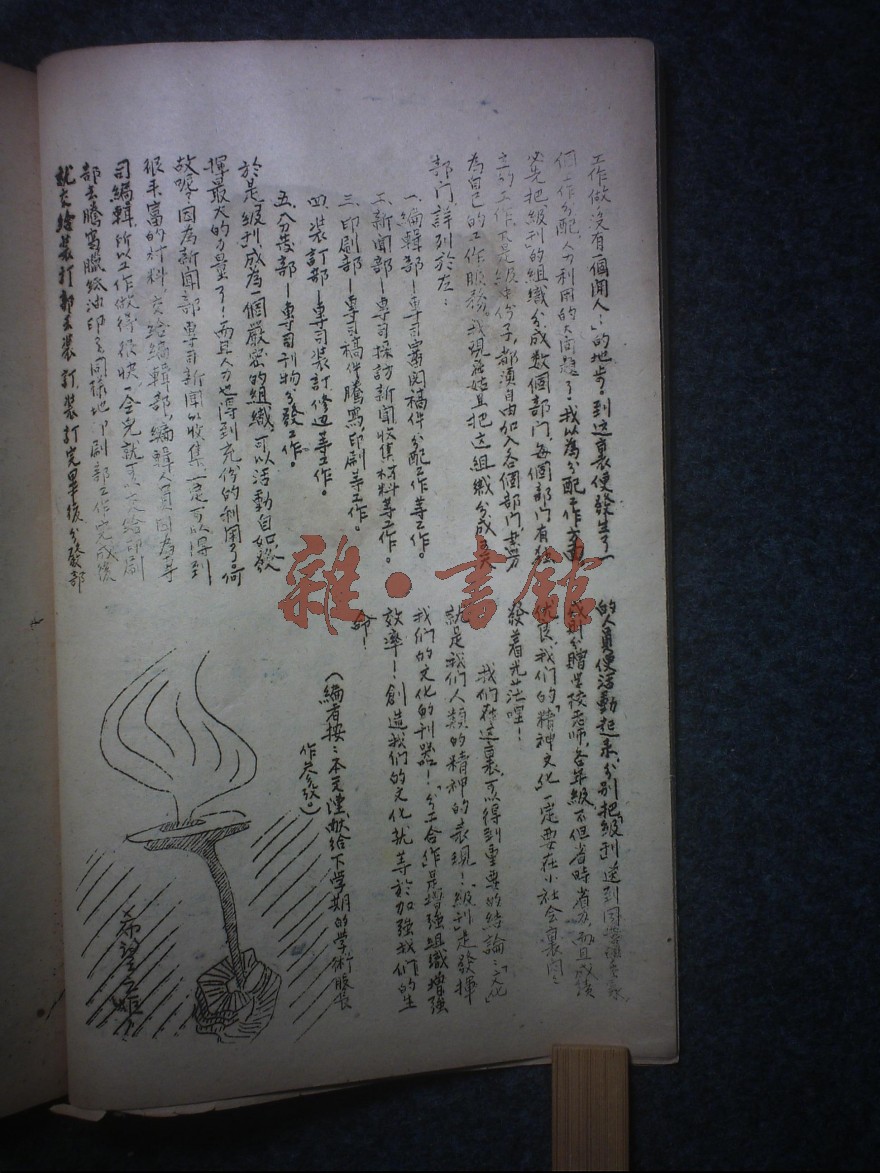 工作做沒有一個閒人：」的地步。到这裏便發生了一
個工作分配，人力利用的大問題了！我以為分配工作方面
必先把「級刊」的組織分成数個部门，每個部门有独
立的工作凡是級中份子，都須自由加入各個部门去努
為自己的工作服務。我現在姑且把这組織分成五大
部门，詳列於左：
一.編輯部—專司審閱稿件分配工作等工作。
二.新聞部—專司採訪新聞收集材料等工作。
三.印刷部—專司稿件謄寫，印刷等工作。
四.裝訂部—專司裝訂修边等工作。
五.分發部—專司刊物分發工作。
於是「級刊」成為一個嚴密的組織，可以活動自如，發
揮最大的力量了！而且人力也得到充份的利用了。何
故呢？因為新聞部專司新聞的收集，一定可以得到
很丰富的材料交給編輯部，編輯人員因為專
司編輯，所以工作做得很快，一会兒就可以交給印刷
部去謄寫臘紙油印了。同樣地，印刷部工作完成後
就交給裝訂部去裝訂，裝訂完畢後，分發部
的人員便活動起來，分別把「級刊」送到同學
分贈學校老師，各年級，不但省時省力，而且成績
优良，我们的「精神文化」一定要在小社会裏閃：
發着光茫哩！
我们在这裏，可以得到重要的結論：「文化」
就是我们人類的精神的表現！「級刊」是發揮
我们的文化的利器！「分工合作」是增强組織增强
效率！創造我们的文化就等於加强我们的生
命！
（編者按：本文謹献給下學期的學術股長
作參攷。）
希望之